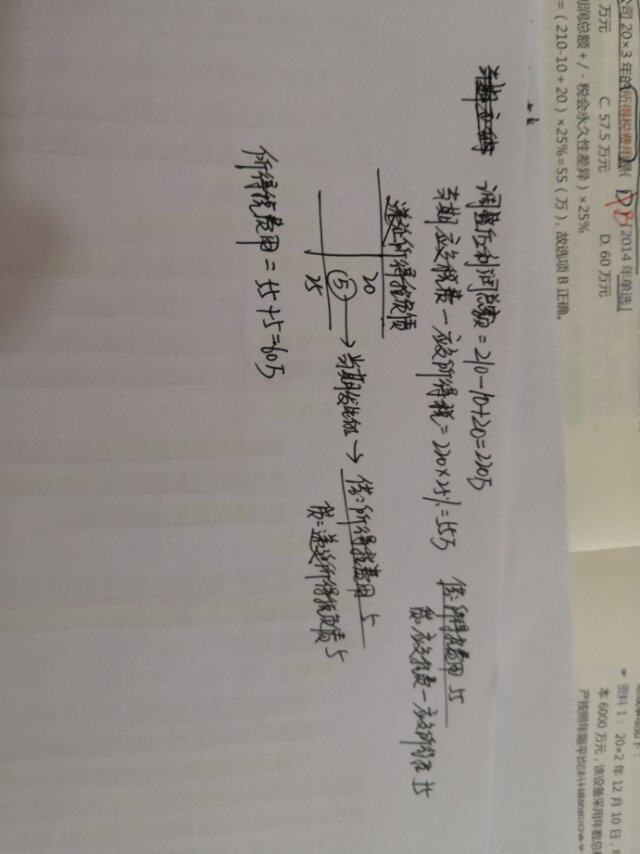 公司 20×3 年的所得税费用是( DB [2014 年单选]
万元 C. 57.5 万元 D. 60 万元
利润总额 +/ - 税会永久性差异)×25%
=(210-10+20)×25%=55(万),故选项 B 正确。
调整后利润总额 = 210-10+20=220万
当期应交税费-应交所得税 = 220×25%=55万
借:所得税费用 55
贷:应交税费-应交所得税 55
递延所得税负债
20
(5) → 当期发生额 → 借:所得税费用 5
25
贷:递延所得税负债 5
所得税费用 = 55+5=60万
资料 1: 20×2 年 12 月 10 日,
本 6000 万元,该设备采用年数总和